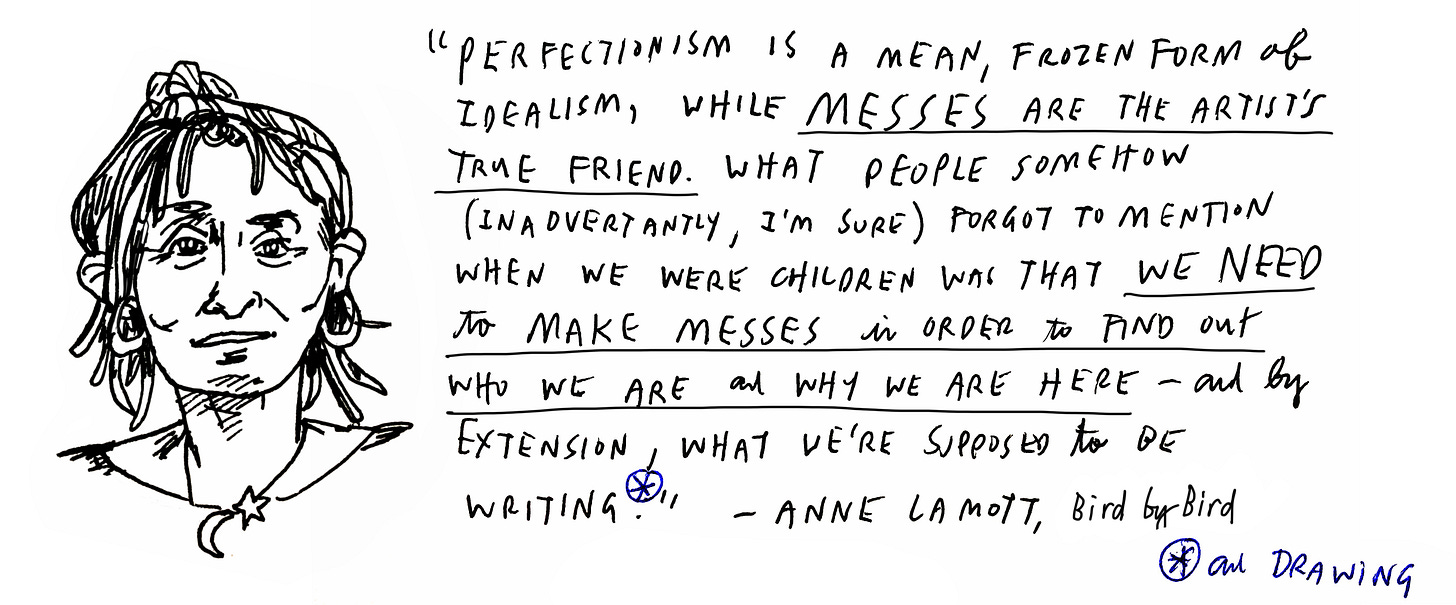 "PERFECTIONISM IS A MEAN, FROZEN FORM of
IDEALISM, WHILE MESSES ARE THE ARTIST'S
TRUE FRIEND. WHAT PEOPLE SOMEHOW
(INADVERTANTLY, I'M SURE) FORGOT TO MENTION
WHEN WE WERE CHILDREN WAS THAT WE NEED
to MAKE MESSES in ORDER to FIND out
WHO WE ARE and WHY WE ARE HERE – and by
EXTENSION, WHAT WE'RE SUPPOSED to BE
WRITING.*" – ANNE LAMOTT, Bird by Bird
* and DRAWING